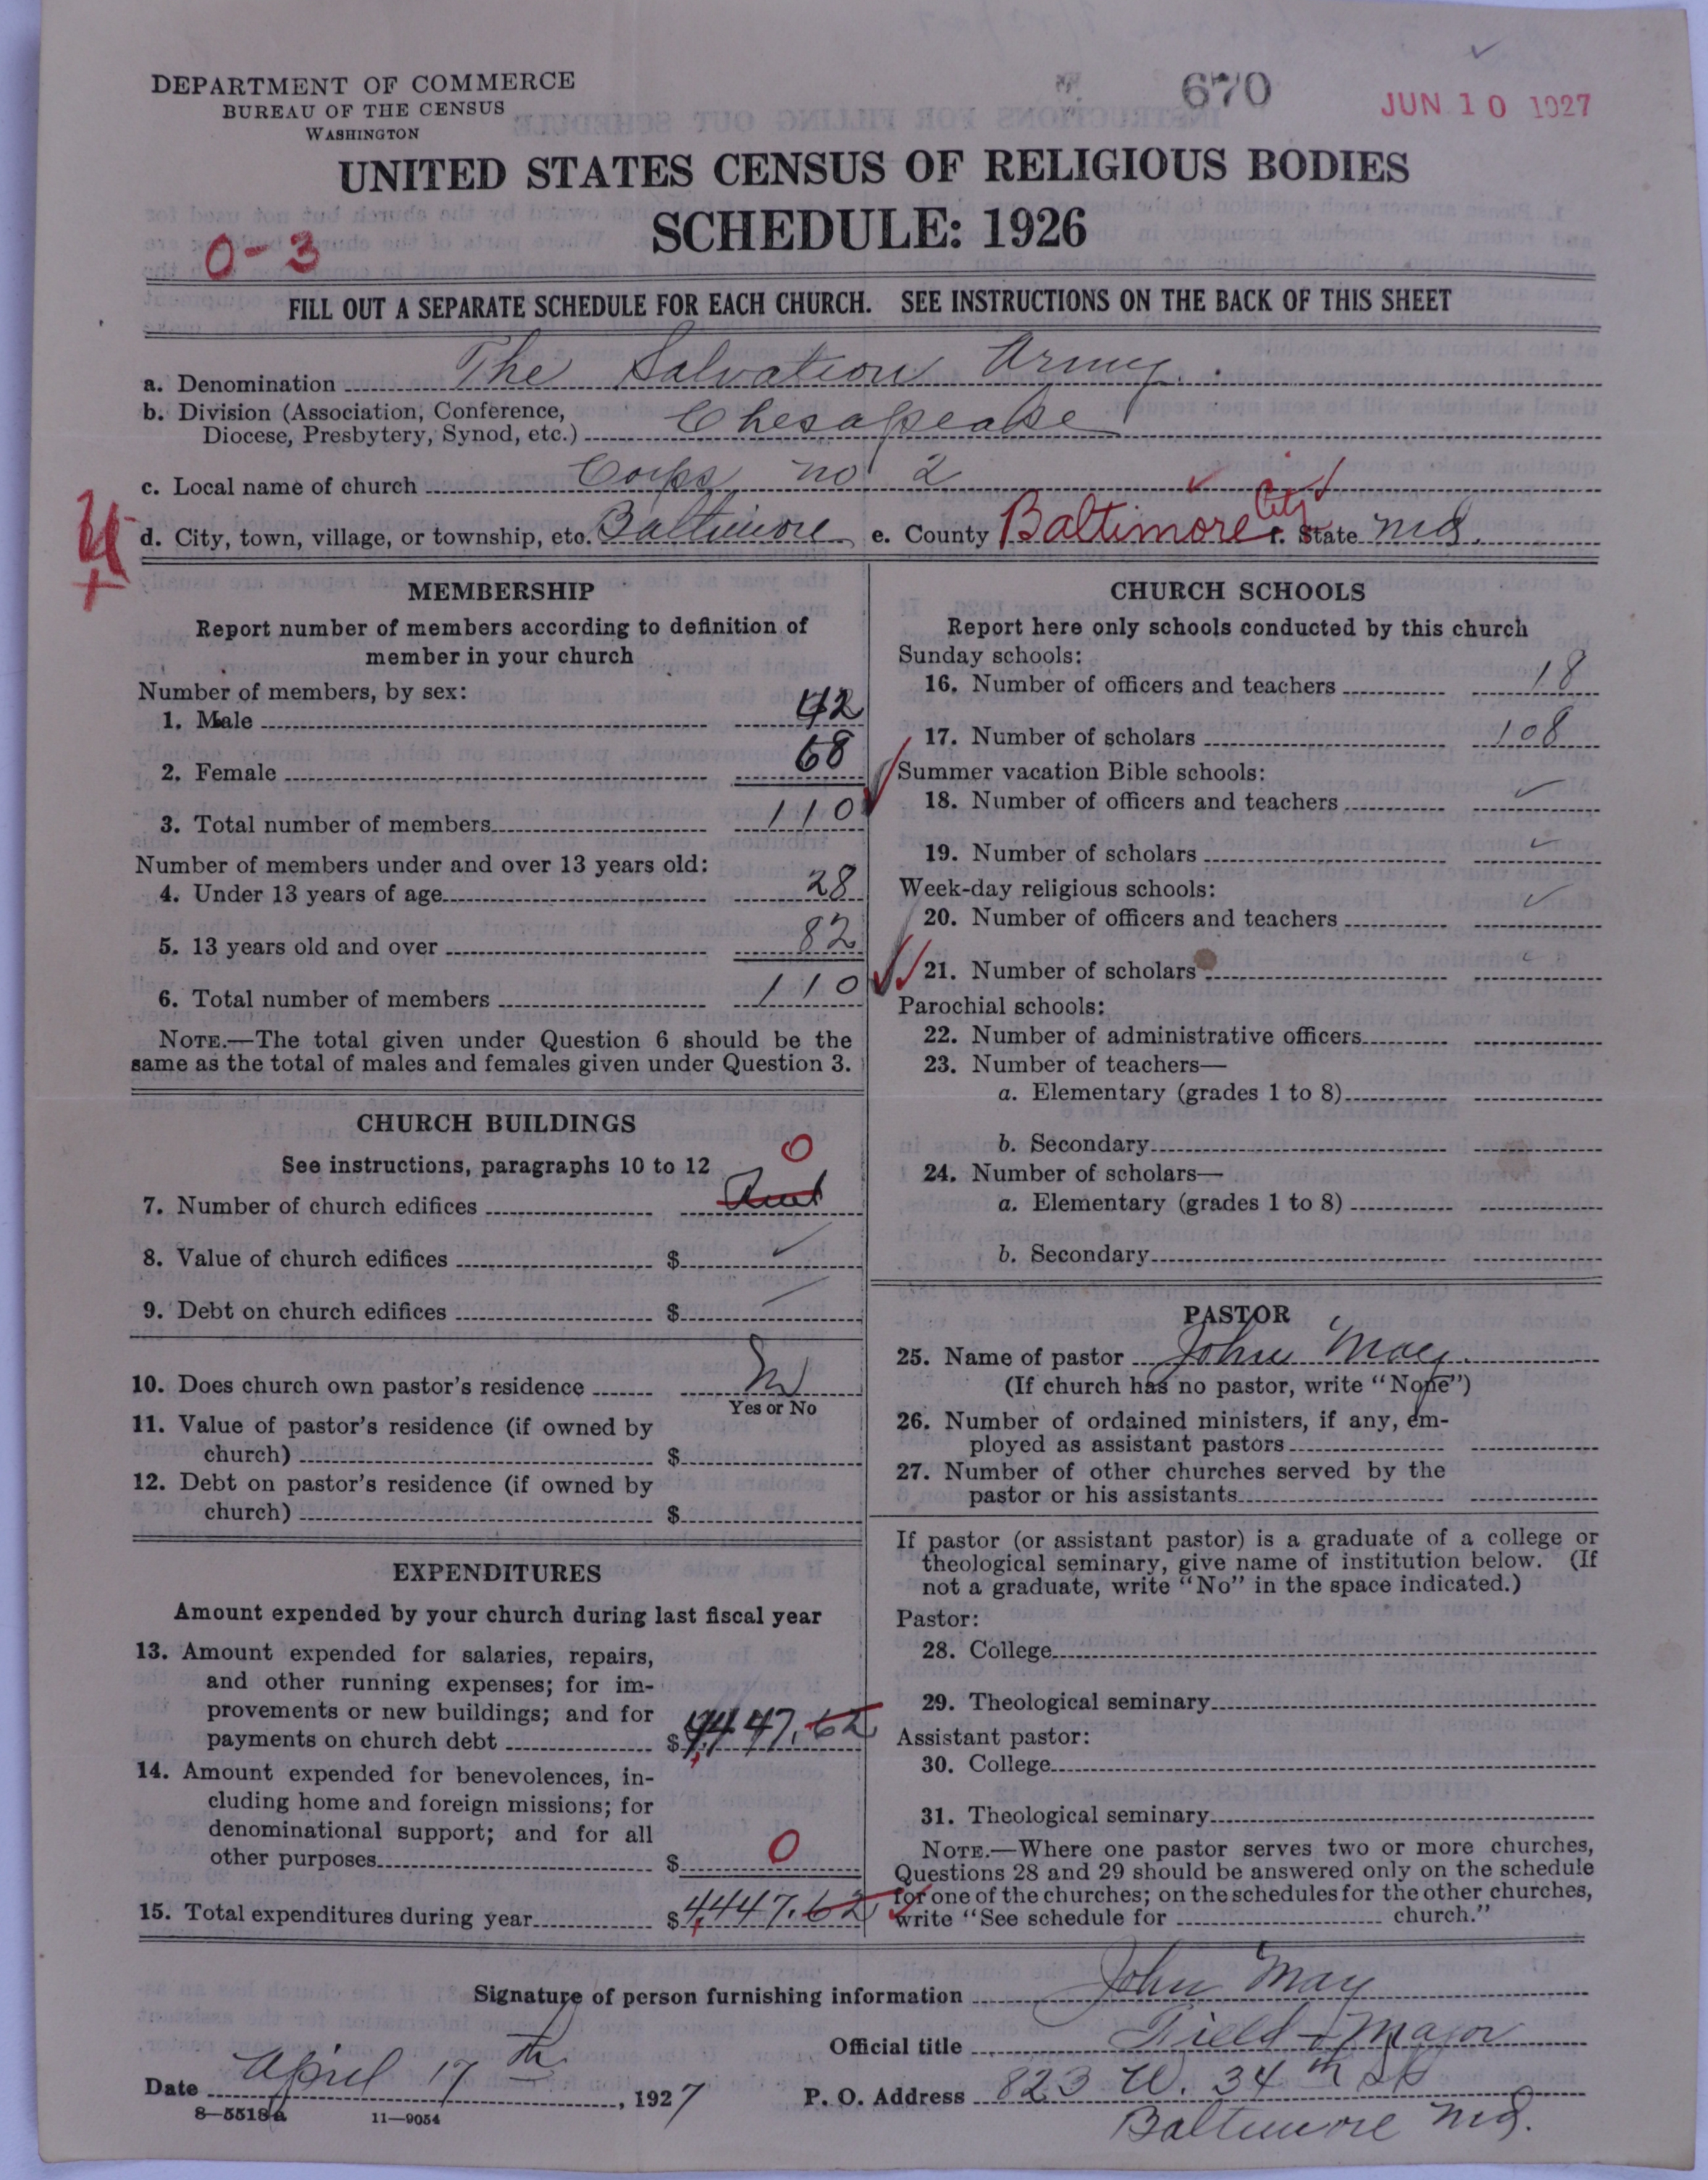 DEPARTMENT OF COMMERCE
BUREAU OF THE CENSUS
WASHINGTON
670
JUN 10 1927
UNITED STATES CENSUS OF RELIGIOUS BODIES
SCHEDULE: 1926
0-3
FILL OUT A SEPARATE SCHEDULE FOR EACH CHURCH. SEE INSTRUCTIONS ON THE BACK OF THIS SHEET
a. Denomination The Salvation Army.
b. Division (Association, Conference,
Diocese, Presbytery, Synod, etc.) Chesapeake
c. Local name of church Corps no 2
d. City, town, village, or township, etc. Baltimore e. County Baltimore City f. State Md.
MEMBERSHIP
Report number of members according to definition of
member in your church
Number of members, by sex:
1. Male 42
2. Female 68
3. Total number of members 110
Number of members under and over 13 years old:
4. Under 13 years of age 28
5. 13 years old and over 82
6. Total number of members 110
NOTE.—The total given under Question 6 should be the
same as the total of males and females given under Question 3.
CHURCH BUILDINGS
See instructions, paragraphs 10 to 12
0
7. Number of church edifices Rent
8. Value of church edifices $
9. Debt on church edifices $
10. Does church own pastor's residence No
Yes or No
11. Value of pastor's residence (if owned by
church) $
12. Debt on pastor's residence (if owned by
church) $
EXPENDITURES
Amount expended by your church during last fiscal year
13. Amount expended for salaries, repairs,
and other running expenses; for im-
provements or new buildings; and for
payments on church debt $4,447.62
14. Amount expended for benevolences, in-
cluding home and foreign missions; for
denominational support; and for all
other purposes $ 0
15. Total expenditures during year $4,447.62
CHURCH SCHOOLS
Report here only schools conducted by this church
Sunday schools:
16. Number of officers and teachers 18
17. Number of scholars 108
Summer vacation Bible schools:
18. Number of officers and teachers
19. Number of scholars
Week-day religious schools:
20. Number of officers and teachers
21. Number of scholars
Parochial schools:
22. Number of administrative officers
23. Number of teachers—
a. Elementary (grades 1 to 8)
b. Secondary
24. Number of scholars—
a. Elementary (grades 1 to 8)
b. Secondary
PASTOR
25. Name of pastor John May.
(If church has no pastor, write "None")
26. Number of ordained ministers, if any, em-
ployed as assistant pastors
27. Number of other churches served by the
pastor or his assistants
If pastor (or assistant pastor) is a graduate of a college or
theological seminary, give name of institution below. (If
not a graduate, write "No" in the space indicated.)
Pastor:
28. College
29. Theological seminary
Assistant pastor:
30. College
31. Theological seminary
NOTE.—Where one pastor serves two or more churches,
Questions 28 and 29 should be answered only on the schedule
for one of the churches; on the schedules for the other churches,
write "See schedule for church."
Signature of person furnishing information John May
Official title Field-Major
Date April 17th, 1927 P. O. Address 823 W. 34th St
Baltimore Md.
8—5518a 11—9054